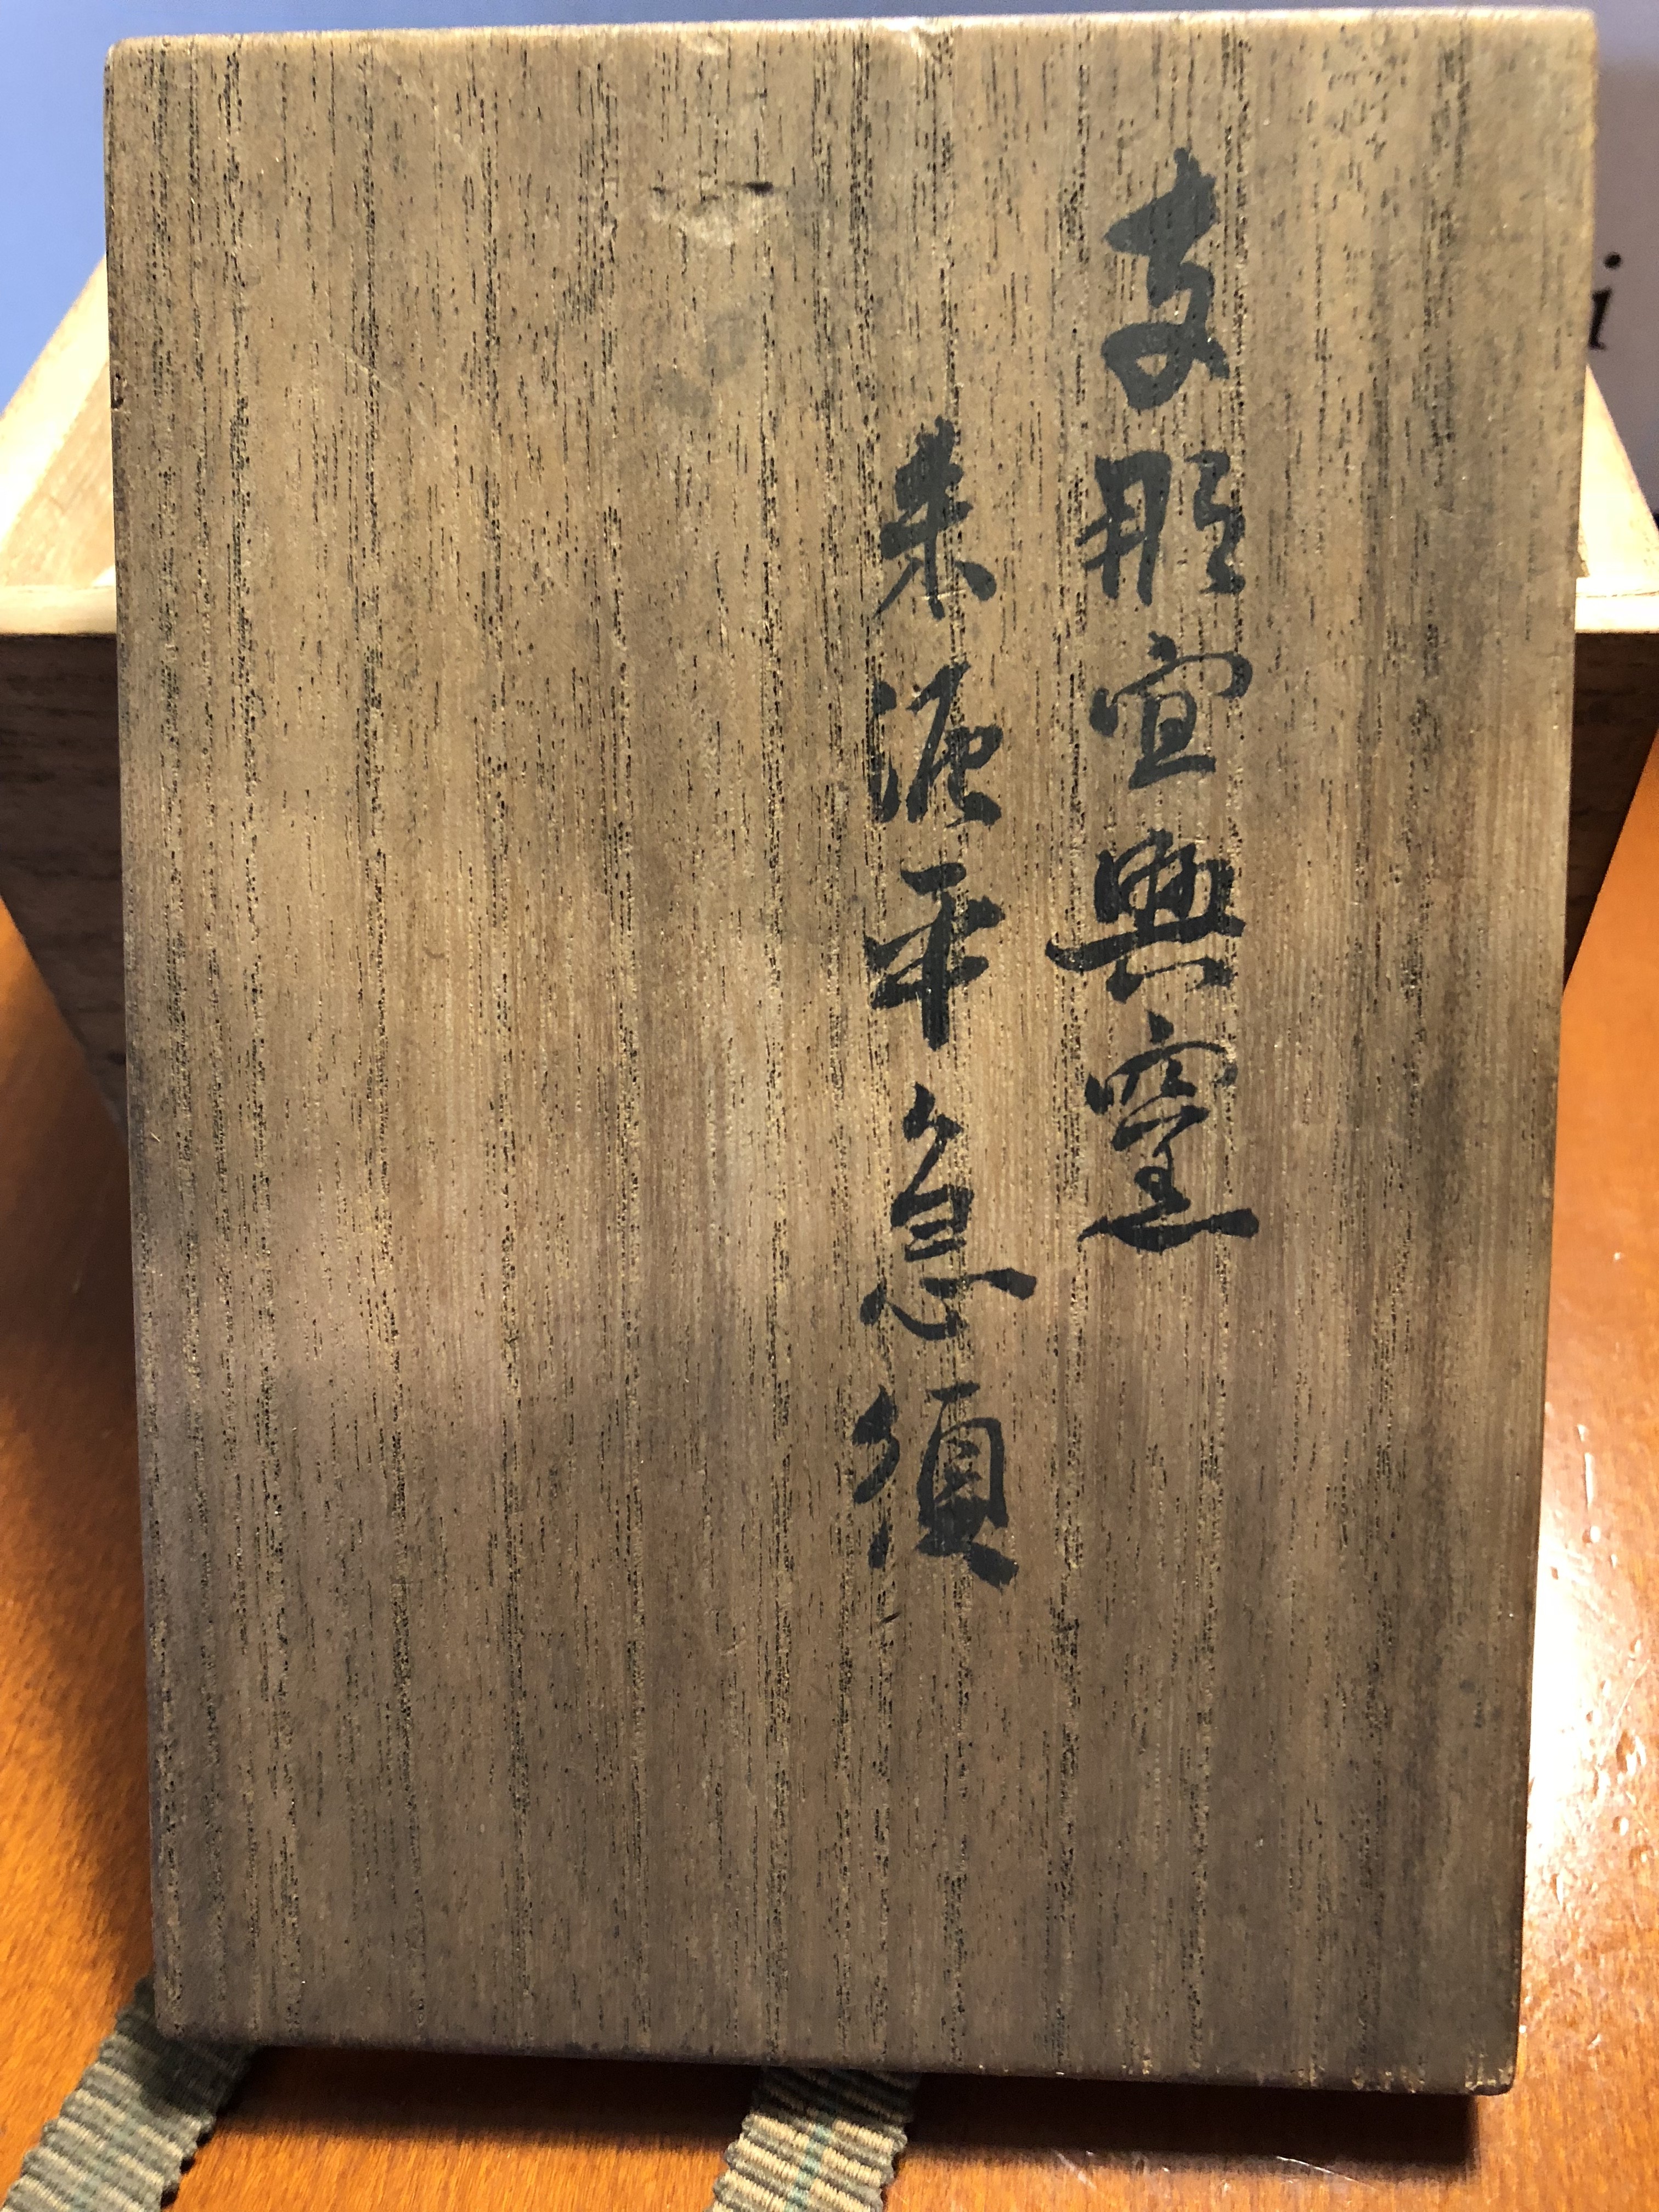 支那宜興窯
朱泥平急須